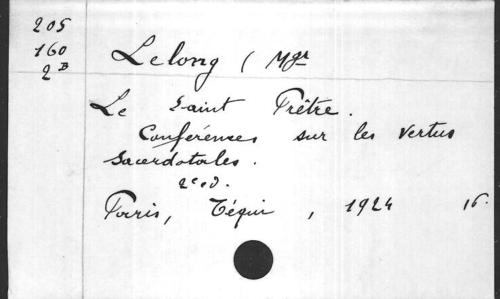 205
160
2B
Lelong (Mgr
Le Saint Prêtre.
Conférences sur les vertus
sacerdotales.
2e éd.
Paris, Téqui, 1924 16.